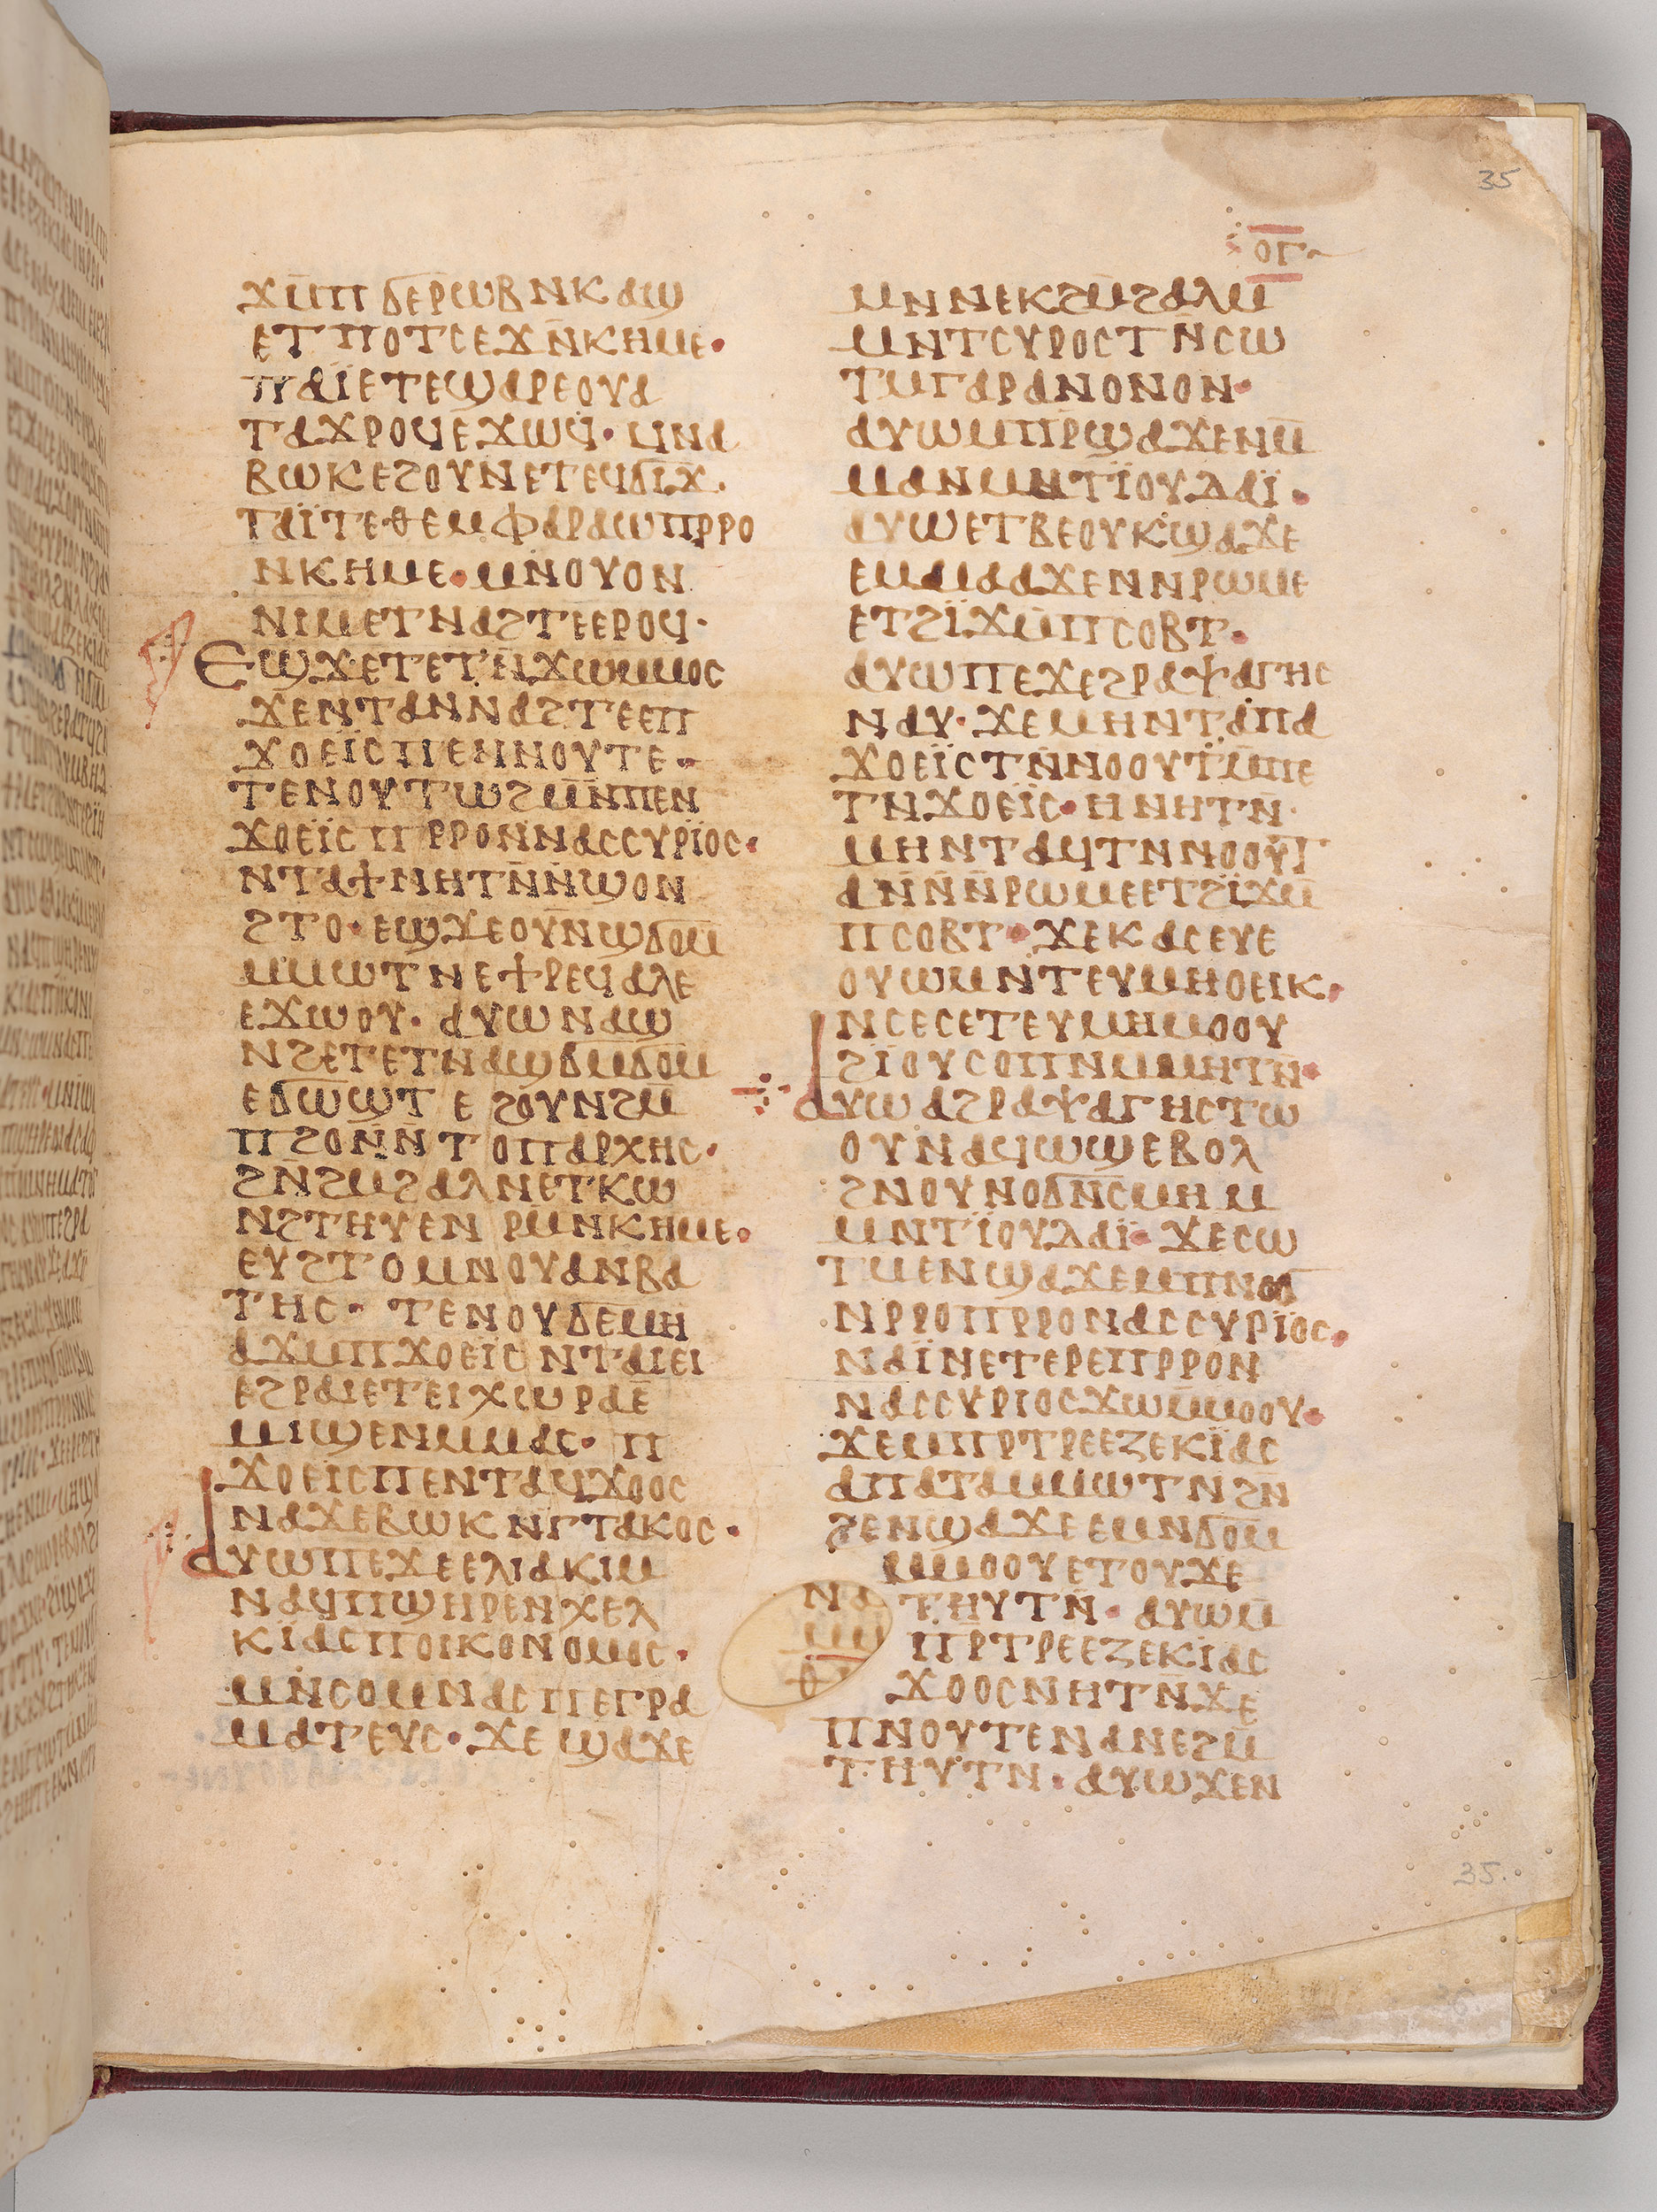 35
ⲟⲅ
ϫⲙ̄ⲡϭⲉⲣⲱⲃ ⲛⲕⲁϣ
ⲉⲧⲡⲟⲧⲥ ⲉϫⲛ̄ⲕⲏⲙⲉ·
ⲡⲁⲓ̈ ⲉⲧⲉϣⲁⲣⲉⲟⲩⲁ
ⲧⲁϫⲣⲟϥ ⲉϫⲱϥ· ϥⲛⲁ
ⲃⲱⲕ ⲉϩⲟⲩⲛ ⲉⲧⲉϥϭⲓϫ·
ⲧⲁⲓ̈ⲧⲉ ⲑⲉ ⲙⲫⲁⲣⲁⲱ ⲡⲣⲣⲟ
ⲛⲕⲏⲙⲉ· ⲙⲛⲟⲩⲟⲛ
ⲛⲓⲙ ⲉⲧⲛⲁϩⲧⲉ ⲉⲣⲟϥ·
ⲉϣϫⲉ ⲧⲉⲧⲛ̄ϫⲱⲙⲙⲟⲥ
ϫⲉ ⲛⲧⲁⲛⲛⲁϩⲧⲉ ⲉⲡ
ϫⲟⲉⲓ̈ⲥ ⲡⲉⲛⲛⲟⲩⲧⲉ·
ⲧⲉⲛⲟⲩ ⲧⲱϩ ⲙⲛ̄ⲡⲉⲛ
ϫⲟⲉⲓ̈ⲥ ⲡⲣⲣⲟ ⲛⲛⲁⲥⲥⲩⲣⲓ̈ⲟⲥ·
ⲛⲧⲁϯ ⲛⲏⲧⲛ̄ ⲛ̄ϣⲟ ⲛ
ϩⲧⲟ· ⲉϣϫⲉ ⲟⲩⲛ̄ϣϭⲟⲙ
ⲙⲙⲱⲧⲛ ⲉϯⲣⲉϥⲁⲗⲉ
ⲉϫⲱⲟⲩ· ⲁⲩⲱ ⲛⲁϣ
ⲛϩⲉ ⲧⲉⲧⲛⲁϣϭⲙϭⲟⲙ
ⲉϭⲱϣⲧ ⲉϩⲟⲩⲛ ϩⲙ̄
ⲡϩⲟ ⲛ̄ⲛ̄ⲧⲟⲡⲁⲣⲭⲏⲥ·
ϩⲛ̄ϩⲙϩⲁⲗ ⲛⲉⲧⲕⲱ
ⲛϩⲧⲏⲩ ⲉⲛⲣⲙ̄ⲛⲕⲏⲙⲉ·
ⲉⲩϩⲧⲟ ⲙⲛⲟⲩⲁⲛⲃⲁ
ⲧⲏⲥ· ⲧⲉⲛⲟⲩϭⲉ ⲙⲏ
ⲁϫⲙ ⲡϫⲟⲉⲓ̈ⲥ ⲛⲧⲁⲓⲉⲓ
ⲉϩⲣⲁⲓ ⲉⲧⲉⲓⲭⲱⲣⲁ ⲉ̄
ⲙⲓϣⲉ ⲛⲙⲙⲁⲥ· ⲡ
ϫⲟⲉⲓⲥ ⲡⲉⲛⲧⲁϥϫⲟⲟⲥ
ⲛⲁ ϫⲉ ⲃⲱⲕ ⲛⲅⲧⲁⲕⲟⲥ·
ⲁⲩⲱ ⲡⲉϫⲉ ⲉⲗⲓⲁⲕⲓⲙ
ⲛⲁϥ ⲡϣⲏⲣⲉ ⲛⲭⲉⲗ
ⲕⲓⲁⲥ ⲡⲟⲓⲕⲟⲛⲟⲙⲟⲥ·
ⲙⲛ̄ⲥⲟⲙⲛⲁⲥ ⲡⲉⲅⲣⲁ
ⲙⲁⲧⲉⲩⲥ· ϫⲉ ϣⲁϫⲉ
ⲙⲛⲛⲉⲕϩⲙ̄ϩⲁⲗ ⲙ̄
ⲙⲛⲧⲥⲩⲣⲟⲥ ⲧⲛ̄ⲥⲱ
ⲧⲙ ⲅⲁⲣ ⲁⲛⲟⲛ ⲟⲛ·
ⲁⲩⲱ ⲙⲡⲣ̄ϣⲁϫⲉ ⲛⲙ̄
ⲙⲁⲛ ⲙⲙⲛⲧⲓ̈ⲟⲩⲇⲁⲓ̈·
ⲁⲩⲱ ⲉⲧⲃⲉⲟⲩ ⲕϣⲁϫⲉ
ⲉⲙⲙⲁⲁϫⲉ ⲛⲛⲣⲱⲙⲉ
ⲉⲧϩⲓ̈ϫⲙ̄ⲡⲥⲟⲃⲧ·
ⲁⲩⲱ ⲡⲉϫⲉ ϩⲣⲁⲯⲁⲅⲏⲥ
ⲛⲁⲩ· ϫⲉ ⲙⲏ ⲛⲧⲁⲡⲁ
ϫⲟⲉⲓ̈ⲥ ⲧⲛ̄ⲛⲟⲟⲩⲧ ⲙ̄ⲡⲉ
ⲧⲛϫⲟⲉⲓ̈ⲥ· ⲏ ⲛⲏⲧⲛ̄·
ⲙⲏ ⲛⲧⲁϥⲧⲛⲛⲟⲟⲩⲧ
ⲁⲛ ⲛ̄ⲛ̄ⲣⲱⲙⲉ ⲉⲧϩⲓ̈ϫⲙ̄
ⲡⲥⲟⲃⲧ· ϫⲉⲕⲁⲥ ⲉⲩⲉ
ⲟⲩⲱⲙ ⲛⲧⲉⲩⲙⲏ ⲟⲉⲓⲕ·
ⲛⲥⲉⲥⲉ ⲧⲉⲩⲙⲏ ⲙⲟⲟⲩ
ϩⲓ̈ⲟⲩⲥⲟⲡ ⲛⲙⲙⲏⲧⲛ̄·
ⲁⲩⲱ ⲁϩⲣⲁⲯⲁⲅⲏⲥ ⲧⲱ
ⲟⲩⲛ ⲁϥⲱϣ ⲉⲃⲟⲗ
ϩⲛⲟⲩⲛⲟϭ ⲛ̄ⲥⲙⲏ ⲙ
ⲙⲛⲧⲓ̈ⲟⲩⲇⲁⲓ̈· ϫⲉ ⲥⲱ
ⲧⲙ ⲉⲛϣⲁϫⲉ ⲙⲡⲛⲟϭ
ⲛⲣⲣⲟ ⲡⲣⲣⲟ ⲛⲁⲥⲥⲩⲣⲓ̈ⲟⲥ·
ⲛⲁⲓ̈ ⲛⲉⲧⲉⲣⲉⲡⲣⲣⲟ ⲛ
ⲛⲁⲥⲥⲩⲣⲓⲟⲥ ϫⲱ ⲙ̄ⲙⲟⲟⲩ·
ϫⲉ ⲙⲡⲣⲧⲣⲉⲉⲍⲉⲕⲓ̈ⲁⲥ
ⲁⲡⲁⲧⲁ ⲙⲙⲱⲧⲛ ϩⲛ̄
ϩⲉⲛϣⲁϫⲉ ⲉⲙⲛϭⲟⲙ
ⲙⲙⲟⲟⲩ ⲉⲧⲟⲩϫⲉ
ⲧⲏⲩⲧⲛ̄· ⲁⲩⲱ ⲙ̄
ⲡⲣ̄ⲧⲣⲉⲉⲍⲉⲕⲓ̈ⲁⲥ
ϫⲟⲟⲥ ⲛⲏⲧⲛ̄ ϫⲉ
ⲡⲛⲟⲩⲧⲉ ⲛⲁⲛⲉϩⲙ̄
ⲧⲏⲩⲧⲛ· ⲁⲩⲱ ϫⲉⲛ
35.